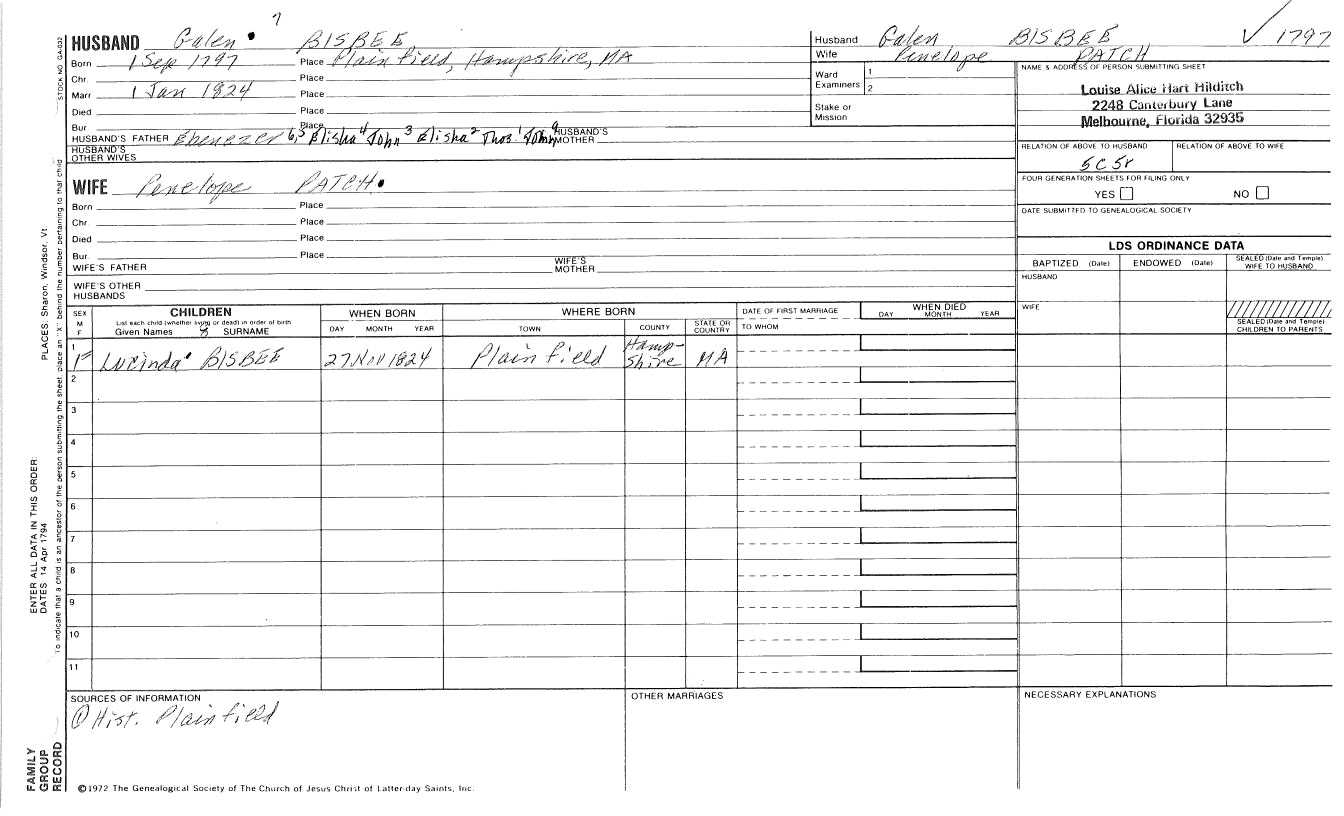 7
HUSBAND Galen BISBEE
Born 1 Sep 1797 Place Plainfield, Hampshire, MA
Chr. Place
Marr. 1 Jan 1824 Place
Died Place
Bur. Place
HUSBAND'S FATHER Ebenezer 6,5 Elisha 4 John 3 Elisha 2 Thos. 1 HUSBAND'S MOTHER
HUSBAND'S OTHER WIVES
WIFE Penelope PATCH
Born Place
Chr. Place
Died Place
Bur. Place
WIFE'S FATHER WIFE'S MOTHER
WIFE'S OTHER HUSBANDS
Husband Galen BISBEE ✓ 1797
Wife Penelope PATCH
Ward 1
Examiners 2
Stake or Mission
NAME & ADDRESS OF PERSON SUBMITTING SHEET
Louise Alice Hart Hilditch
2248 Canterbury Lane
Melbourne, Florida 32935
RELATION OF ABOVE TO HUSBAND RELATION OF ABOVE TO WIFE
5C5r
FOUR GENERATION SHEETS FOR FILING ONLY
YES NO
DATE SUBMITTED TO GENEALOGICAL SOCIETY
LDS ORDINANCE DATA
BAPTIZED (Date) ENDOWED (Date) SEALED (Date and Temple) WIFE TO HUSBAND
HUSBAND
WIFE
SEALED (Date and Temple) CHILDREN TO PARENTS
SEX M F
CHILDREN
List each child (whether living or dead) in order of birth
Given Names SURNAME
WHEN BORN
DAY MONTH YEAR
WHERE BORN
TOWN COUNTY STATE OR COUNTRY
DATE OF FIRST MARRIAGE
TO WHOM
WHEN DIED
DAY MONTH YEAR
1 F Lucinda BISBEE 27 Nov 1824 Plainfield Hamp-shire MA
2
3
4
5
6
7
8
9
10
11
SOURCES OF INFORMATION
① Hist. Plainfield
OTHER MARRIAGES
NECESSARY EXPLANATIONS
©1972 The Genealogical Society of The Church of Jesus Christ of Latter-day Saints, Inc.
STOCK NO. GA-032
To indicate that a child is an ancestor of the person submitting the sheet, place an "X" behind the number pertaining to that child
PLACES: Sharon, Windsor, Vt.
ENTER ALL DATA IN THIS ORDER:
DATES: 14 Apr 1794
FAMILY GROUP RECORD